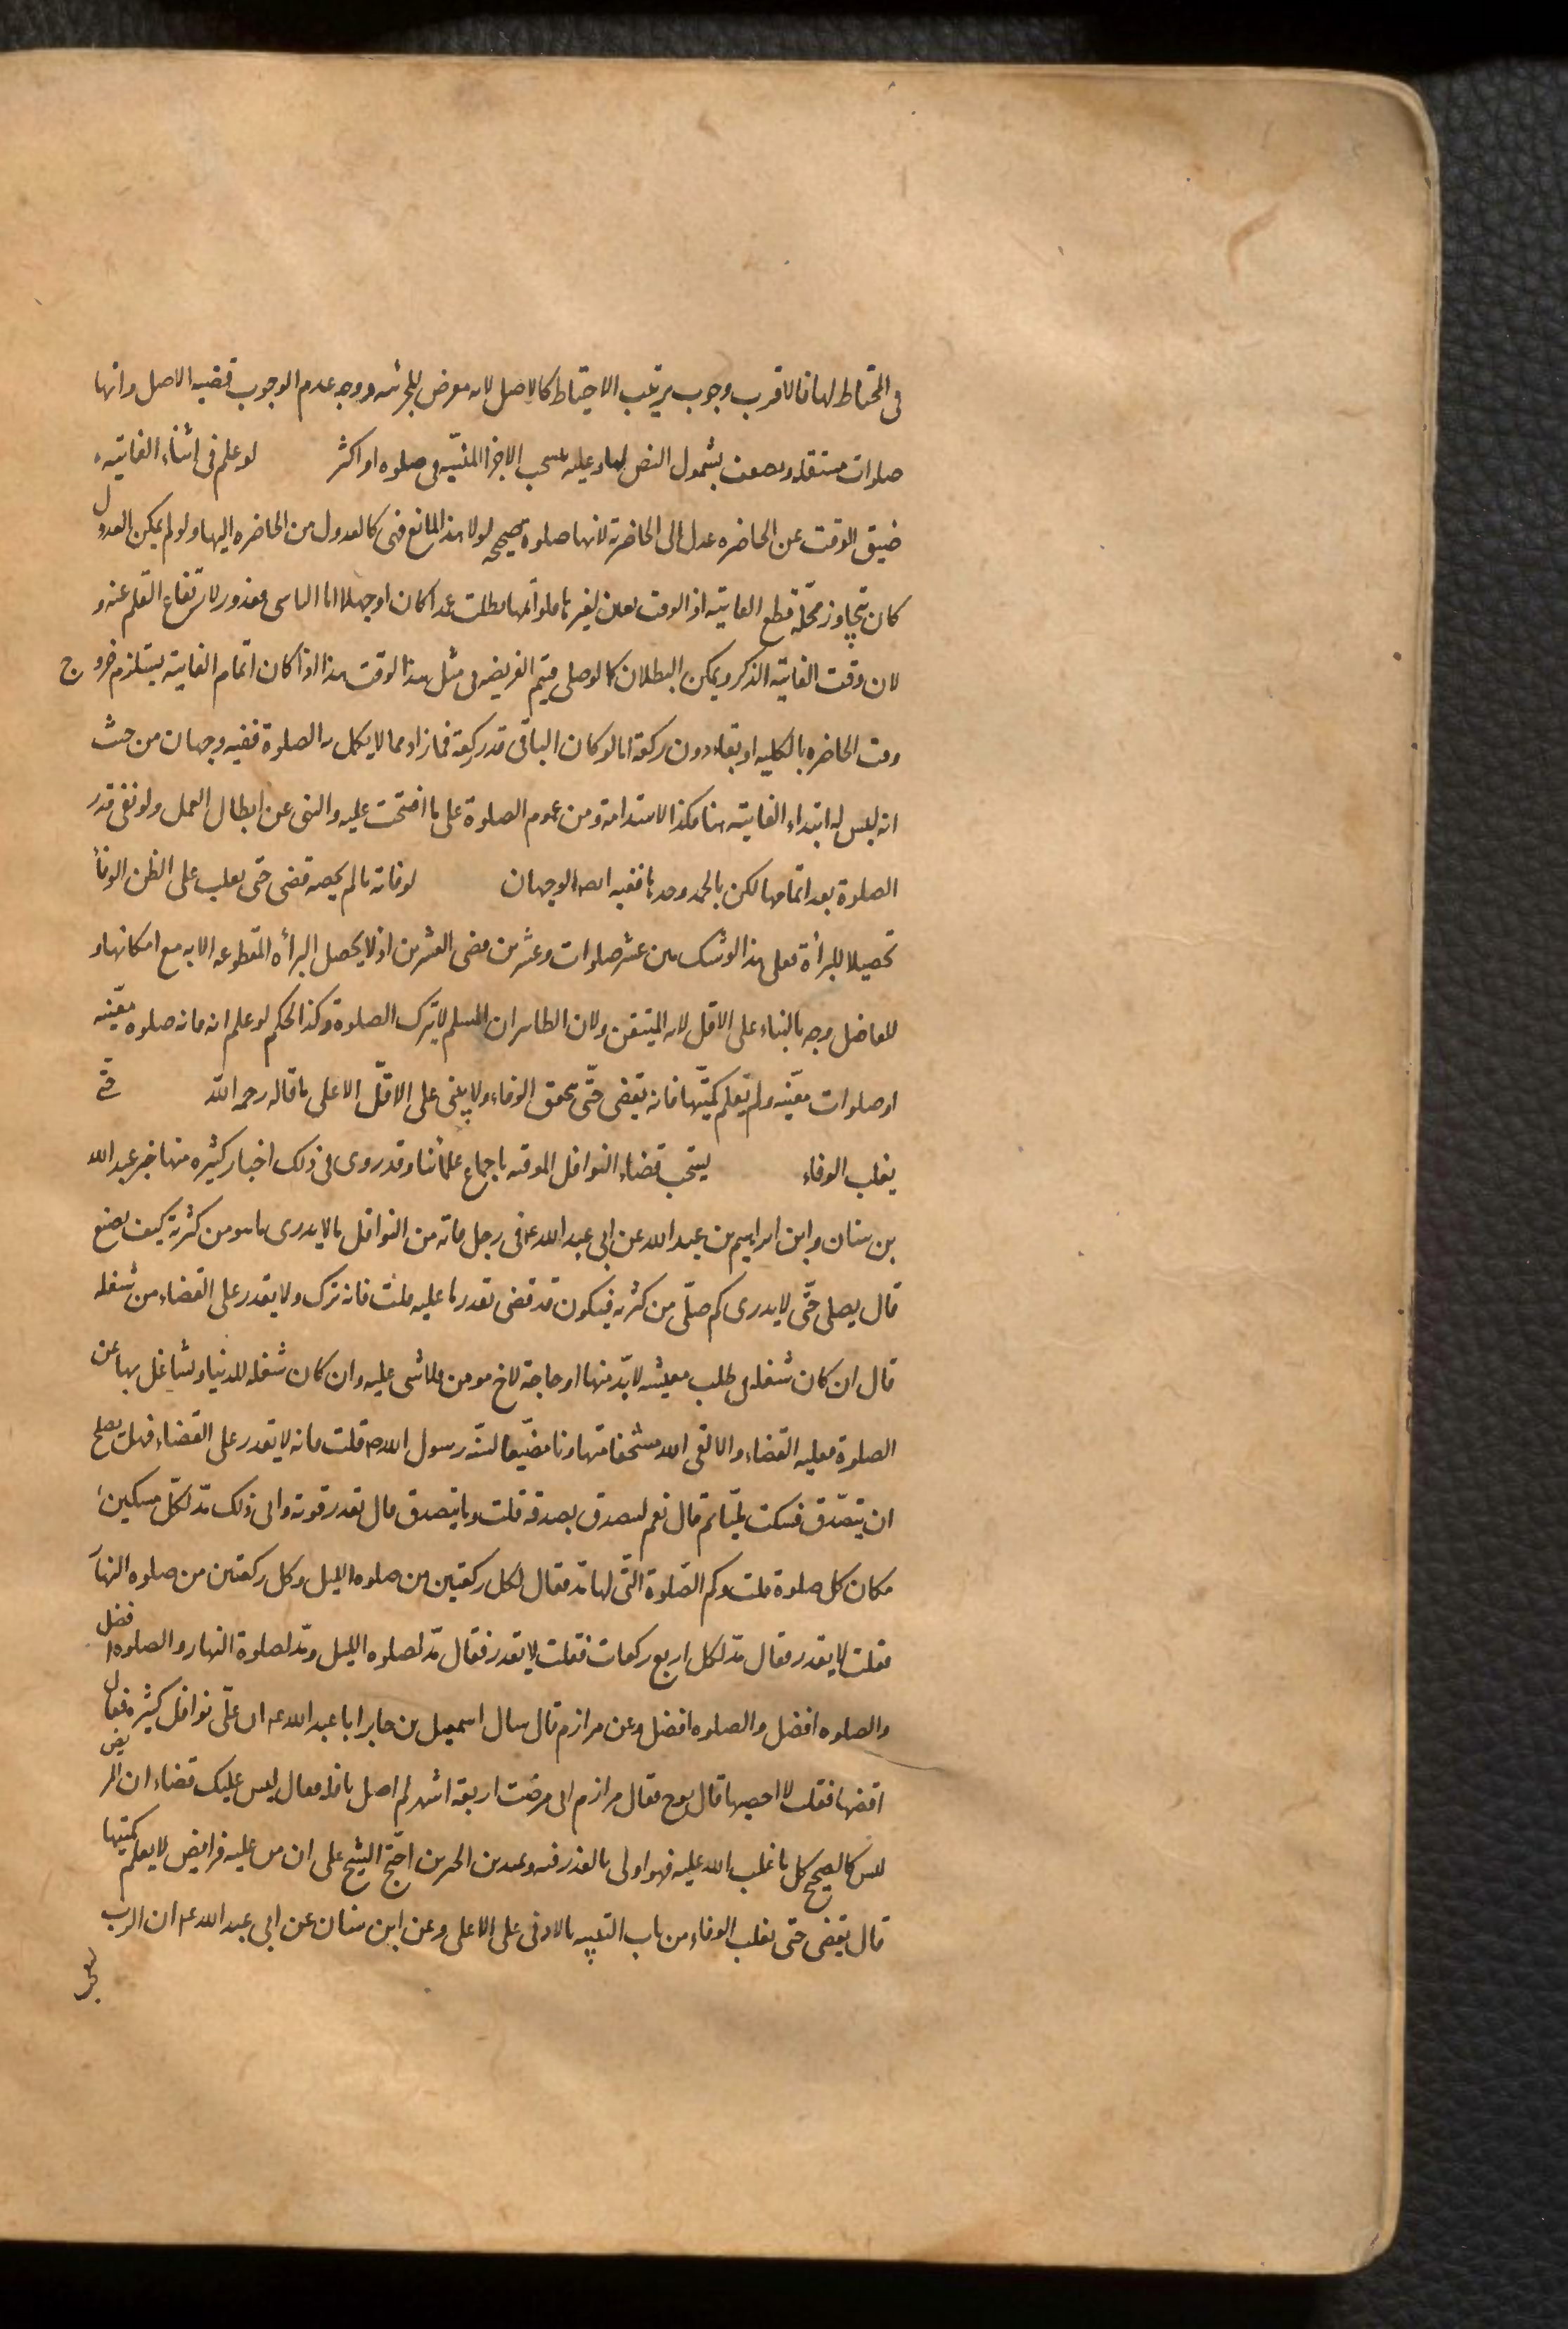 فى المحتاط لها فالاقرب وجوب ترتيب الاحتياط كالاصل لانه معرض للجزئيه ووجه عدم الوجوب قضيه الاصل وانها
صلوات مستقله ويضعف بشمول النص لها وعليه يستحب الاجزا المنسيّه فى صلوه او اكثر لو علم فى اثناء الفايته
ضيق الوقت عن الحاضره عدل الى الحاضرة لانها صلوة صحيحه لولا هذا المانع فهى كالعدول من الحاضره اليها ولو لم يمكن العدول
كان تجاوز محلّه قطع الفايته اذ الوقت معين لغيرها فلو اتمها بطلت عمدا كان او جهلا اما الناسى فمعذور لارتفاع القلم عنه و
لان وقت الفايته الذكر ويمكن البطلان كما لو صلى متيم الفريضه فى مثل هذا الوقت هذا اذا كان اتمام الفايته يستلزم خروج
وقت الحاضره بالكليه او بقاء دون ركعة اما لو كان الباقى قدر ركعة فما زاد مما لا يكمل به الصلوة ففيه وجهان من حيث
انه ليس له ابتداء الفايته هنا فكذا الاستدامة ومن عموم الصلوة على ما افتتحت عليه والنهى عن ابطال العمل ولو بقى قدر
الصلوة بعد اتمامها لكن بالحمد وحدها ففيه ايضا الوجهان لو فاته ما لم يحصه قضى حتى يغلب على الظن الوفأ
تحصيلا للبرأة فعلى هذا لو شك بين عشر صلوات وعشرين قضى العشرين اذ لا يحصل البرأه المقطوعه الا به مع امكانها و
للفاضل وجه بالبناء على الاقل لانه المتيقن ولان الظاهر ان المسلم لا يترك الصلوة وكذا الحكم لو علم انه فاته صلوه معيّنه
او صلوات معيّنه ولم يعلم كميّتها فانه يقضى حتّى يتحقق الوفاء ولا يبنى على الاقلّ الا على ما قاله رحمه الله حتى
يغلب الوفاء يستحب قضاء النوافل الموقته باجماع علمائنا وقد روى فى ذلك اخبار كثيره منها خبر عبد الله
بن سنان وابن ابراهيم بن عبد الله عن ابى عبد الله ع فى رجل فاته من النوافل ما لا يدرى ما هو من كثرته كيف يصنع
قال يصلى حتّى لا يدرى كم صلّى من كثرته فيكون قد قضى بقدر ما عليه قلت فانه ترك ولا يقدر على القضاء من شغله
قال ان كان شغله فى طلب معيشه لابدّ منها او حاجة لاخ مومن فلا شى عليه وان كان شغله للدنيا وتشاغل بها عن
الصلوة فعليه القضاء والا لقى الله مستخفا متهاونا مضيّعا لسنّه رسول الله ص قلت فانه لا يقدر على القضاء فهل يصلح
ان يتصّدق فسكت مليّا ثم قال نعم ليتصدق بصدقه قلت وما يتصدق قال بقدر قوته وادنى ذلك مدّ لكلّ مسكين
مكان كل صلوة قلت وكم الصّلوة التّى لها مد فقال لكل ركعتين من صلوه الليل وكل ركعتين من صلوه النهار
فقلت لا يقدر فقال مدّ لكل اربع ركعات فقلت لا يقدر فقال مدّ لصلوه الليل ومدّ لصلوة النهار والصلوه افضل
والصلوه افضل والصلوه افضل وعن مرازم قال سال اسمعيل بن جابر ابا عبد الله ع ان علّى نوافل كثيره فقال
اقضها فقلت لا احصيها قال توخ فقال مرازم انى مرضت اربعة اشهر لم اصل نافله فقال ليس عليك قضاء ان المريض
ليس كالصحيح كل ما غلب الله عليه فهو اولى بالعذر فيه وبهذين الخبرين احتج الشيخ على ان من عليه فرايض لا يعلم كميتها
قال يقضى حتى يغلب الوفاء من باب التنبيه بالادنى على الاعلى وعن ابن سنان عن ابى عبد الله ع ان الرب